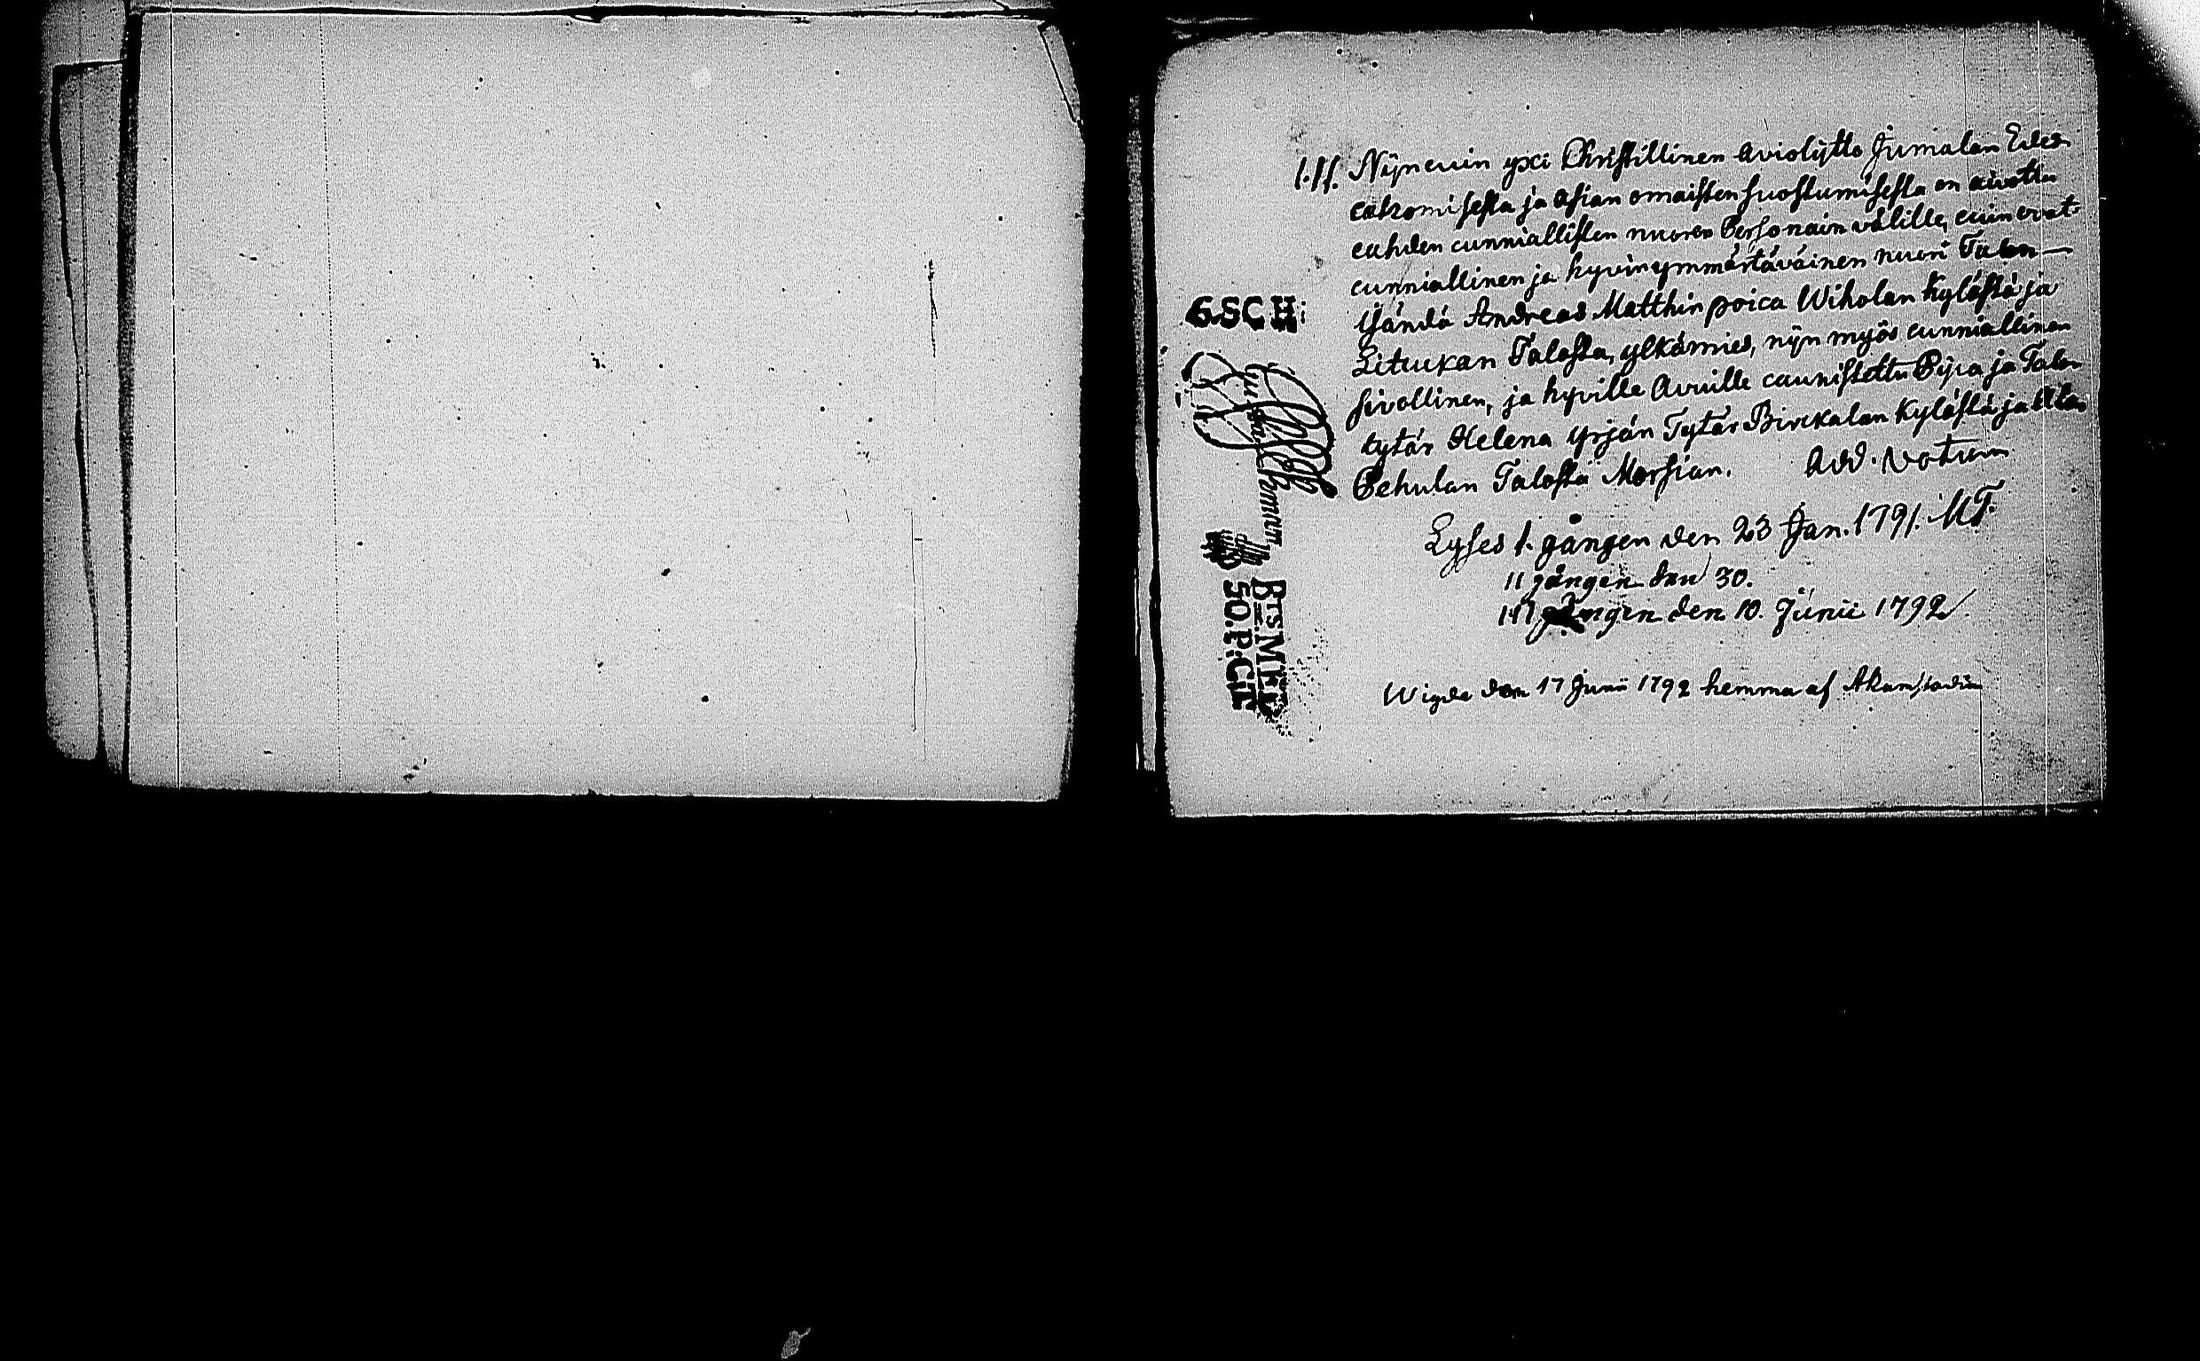 1.11. Nijncuin yxi Christillinen Aviolijtto Jumalan Edes
catzomisesta ja asian omaisten suostumisesta on aivottu
cahden cunniallisten nuoren Personain välille, cuin ovat
cunniallinen ja hyvin ymmärtäväinen nuori Talon
Isändä Andreas Matthin poica Wiholan Kylästä ja
Lituukan Talosta, ylkämies, nijn myös cunniallinen
sivollinen, ja hyville Avuille caunistettu Pijca ja Talon
tytär Helena Yrjän Tytär Birckalan Kylästä ja Ala
Pehulan Talosta Morsian. Add. Votum
Lyses 1. gången den 23 Jan. 1791. MT.
11 gången den 30.
111 gången den 10. Junii 1792
Wigde den 17 Junii 1792 hemma af
G.SCH:
B:TS MET
50.P:CIT